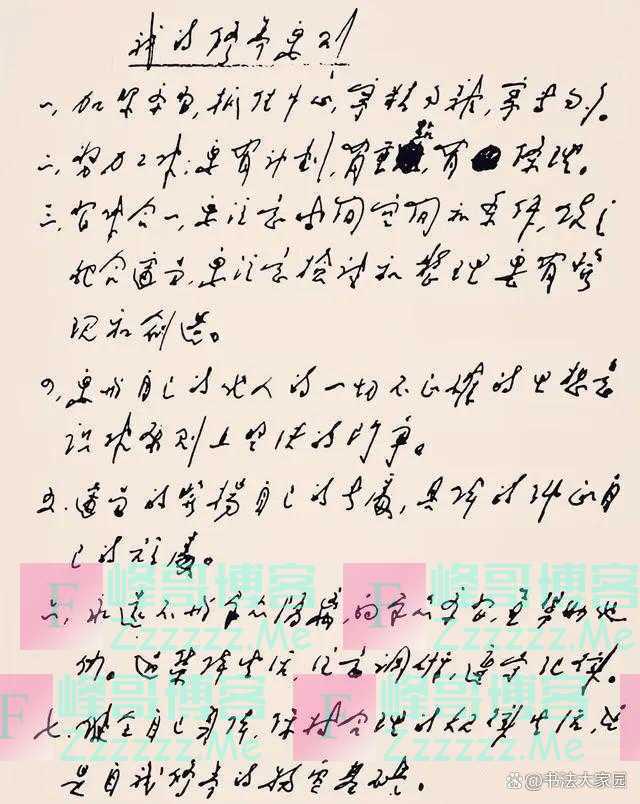 我的修养要则
一、加紧学习，抓住中心，宁精勿杂，宁专勿多。
二、努力工作，要有计划，有重点，有条理。
三、习作合一，要注意时间空间和条件，使之
配合适当，要注意检讨和整理，要有发
现和创造。
四、要与自己的他人的一切不正确的思想意
识作原则上坚决的斗争。
五、适当的发扬自己的长处，具体的纠正自
己的短处。
六、永远不与群众隔离，向群众学习，并帮助他
们。过集体生活，注意调研，遵守纪律。
七、健全自己身体，保持合理的规律生活，这
是自我修养的物质基础。
F 峰哥博客 峰哥博客
Zzzzzz.Me Zzzzzz.Me
F 峰哥博客 峰哥博客
Zzzzzz.Me Zzzzzz.Me
@书法大家园